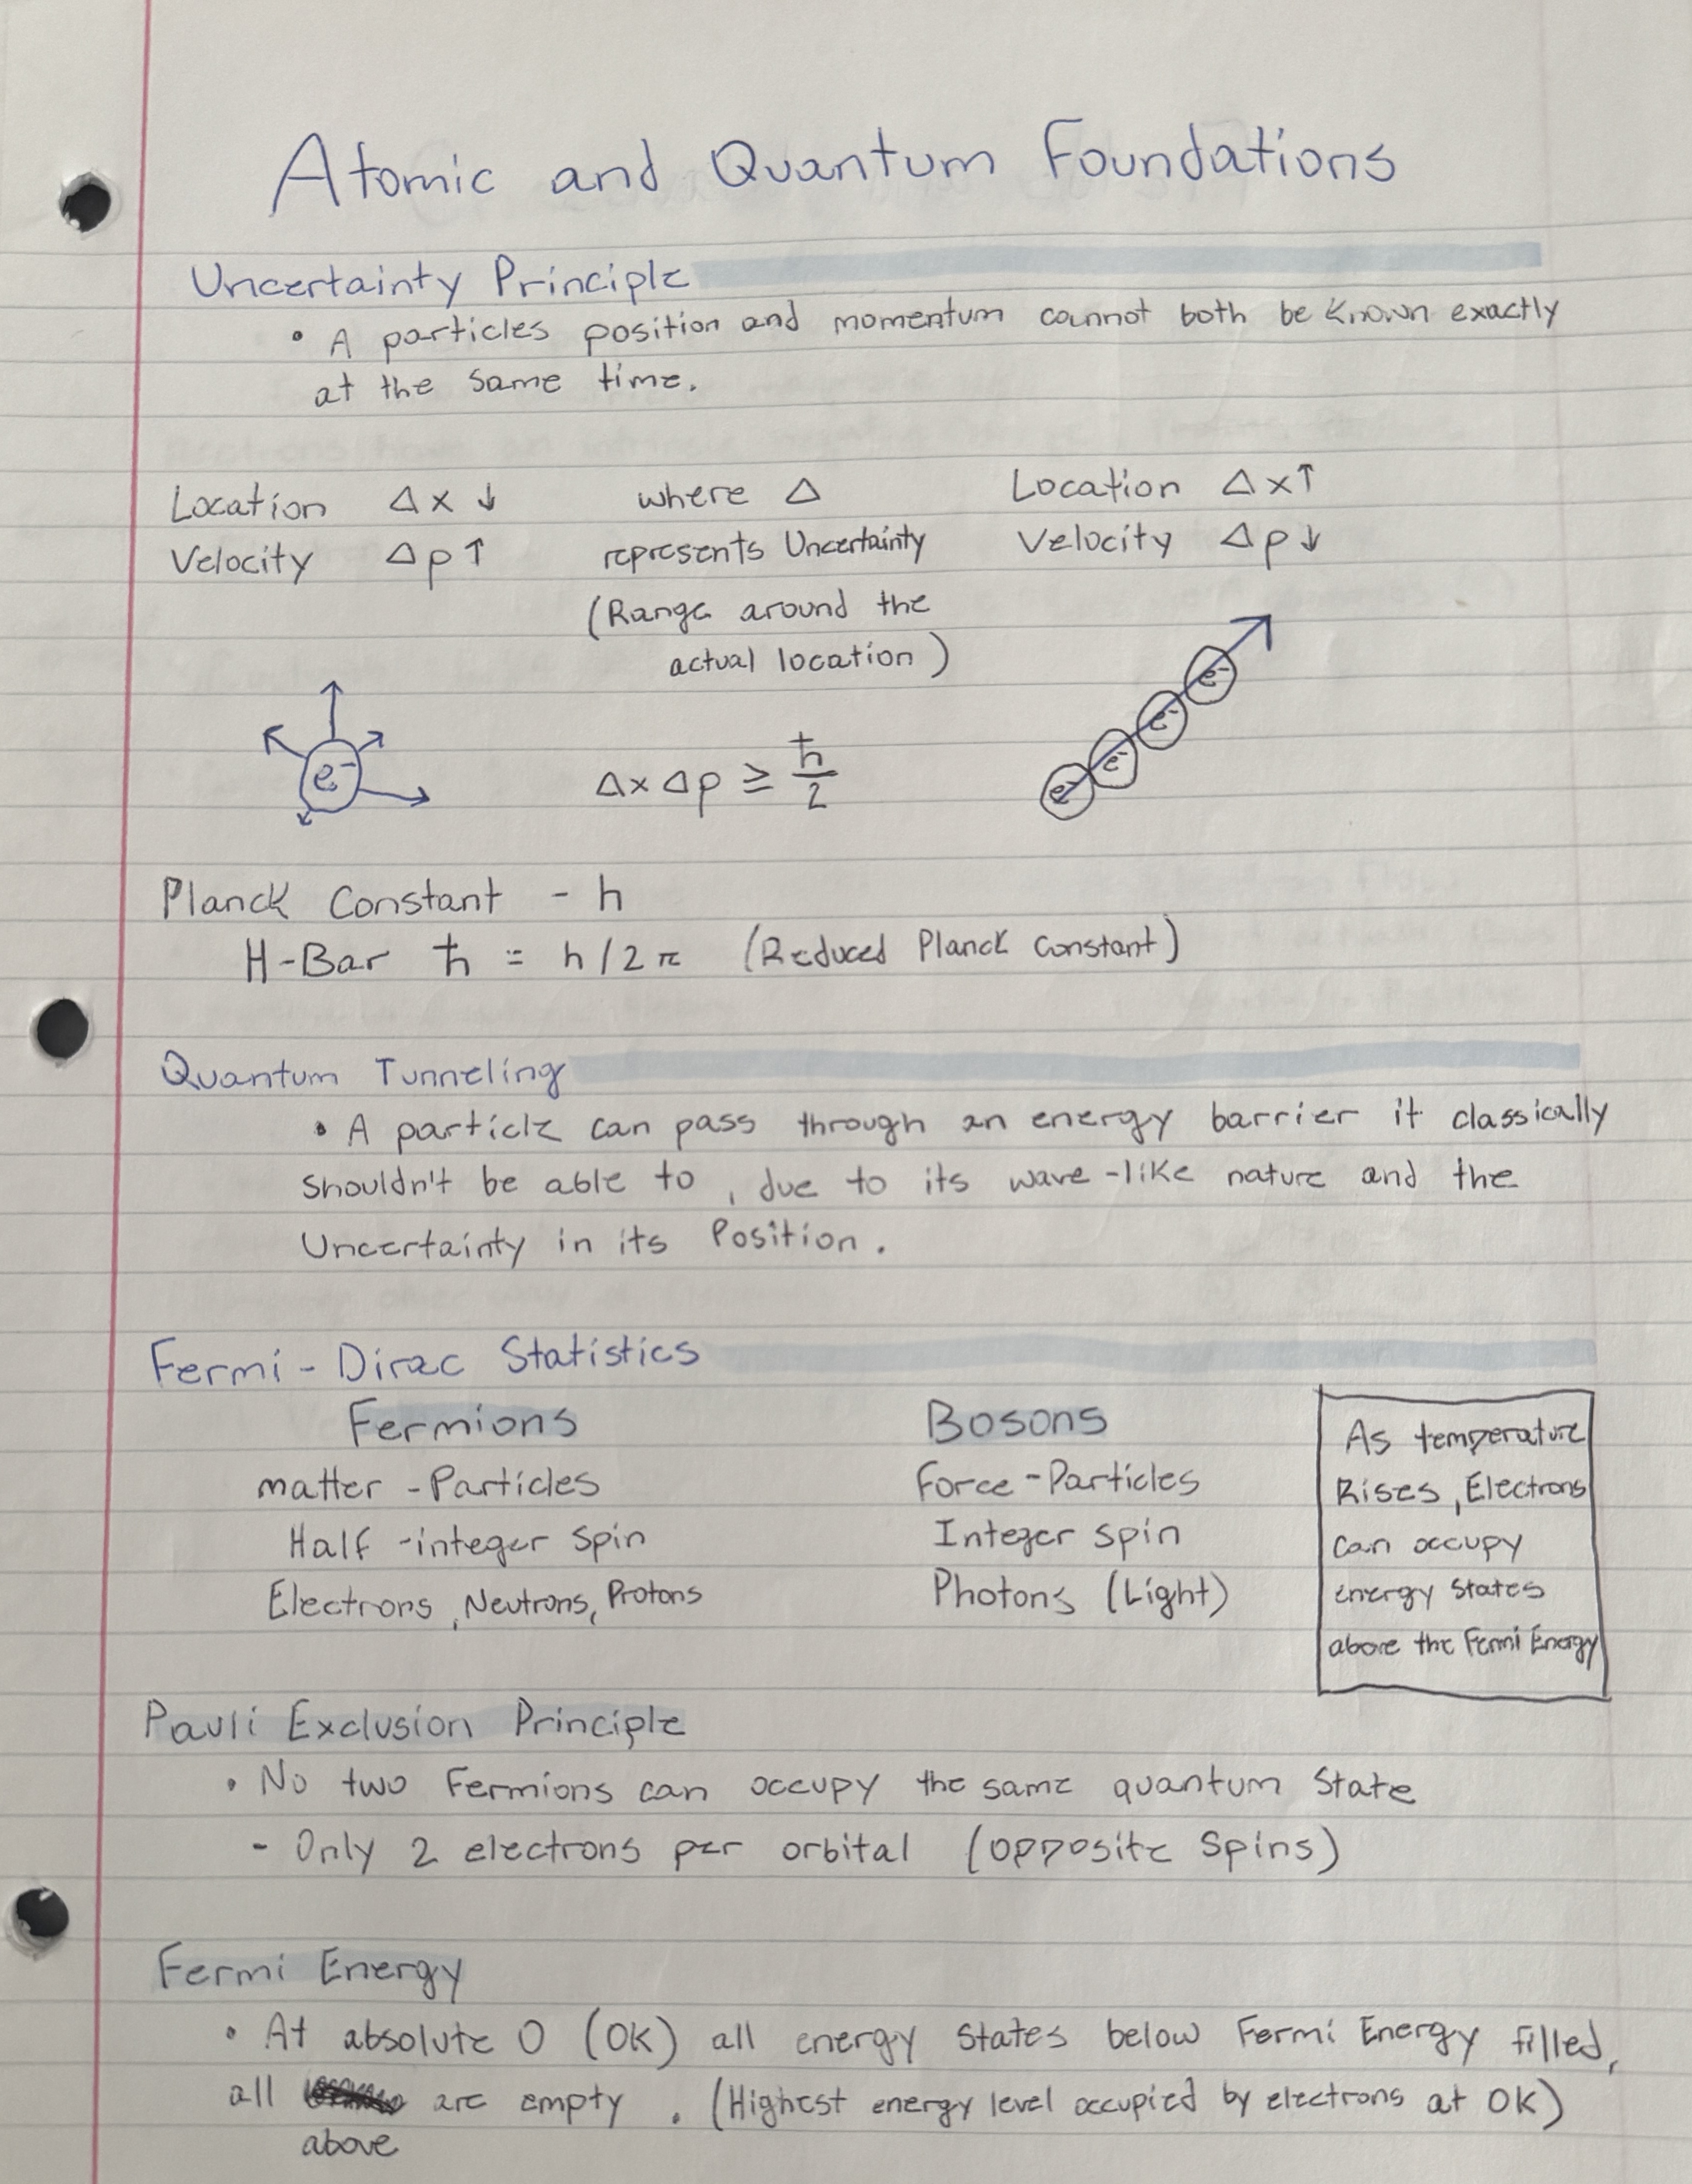 Atomic and Quantum Foundations
Uncertainty Principle
• A particles position and momentum cannot both be known exactly
at the same time.
Location Δx ↓ where Δ Location Δx↑
Velocity Δp↑ represents Uncertainty Velocity Δp↓
(Range around the
actual location)
e⁻ e⁻ e⁻ e⁻ e⁻
Δx Δp ≥ ħ/2
Planck Constant - h
H-Bar ħ = h/2π (Reduced Planck Constant)
Quantum Tunneling
• A particle can pass through an energy barrier it classically
shouldn't be able to, due to its wave-like nature and the
Uncertainty in its Position.
Fermi-Dirac Statistics
Fermions
matter-Particles
Half-integer spin
Electrons, Neutrons, Protons
Bosons
Force-Particles
Integer spin
Photons (Light)
As temperature
Rises, Electrons
can occupy
energy states
above the Fermi Energy
Pauli Exclusion Principle
• No two Fermions can occupy the same quantum state
- Only 2 electrons per orbital (opposite spins)
Fermi Energy
• At absolute 0 (0K) all energy states below Fermi Energy filled,
all above are empty. (Highest energy level occupied by electrons at 0K)